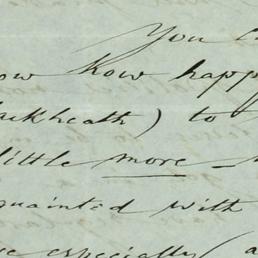 You
how happ
ckheath) to
little more
quainted with
especially (a